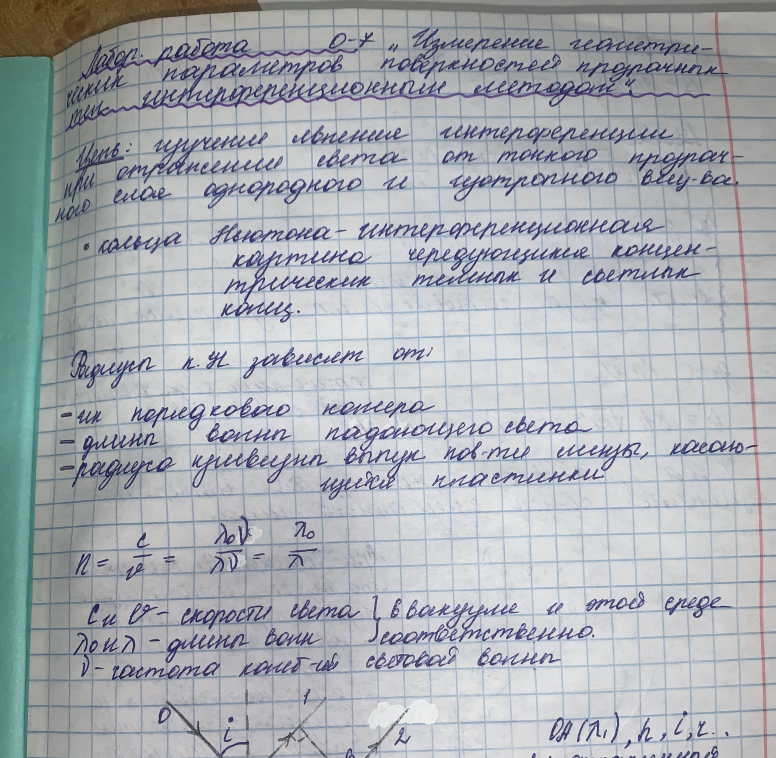 Лабор. работа О-7 „Измерение геометри-
ческих параметров поверхностей прозрачных
тел интерференционным методом“
Цель: изучение явления интерференции
при отражении света от тонкого прозрач-
ного слоя однородного и изотропного вещ-ва.
• кольца Ньютона - интерференционная
картина чередующихся концен-
трических темных и светлых
колец.
Радиусы к.Н зависят от:
- их порядкового номера
- длины волны падающего света
- радиуса кривизны выпук пов-ти линзы, касаю-
щейся пластинки
n = c/v = λ₀ν/λν = λ₀/λ
c и v - скорости света } в вакууме и этой среде
λ₀ и λ - длины волн } соответственно.
ν - частота колеб-ий световой волны
0 i 1 2
OA(λ₁), n, i, r..